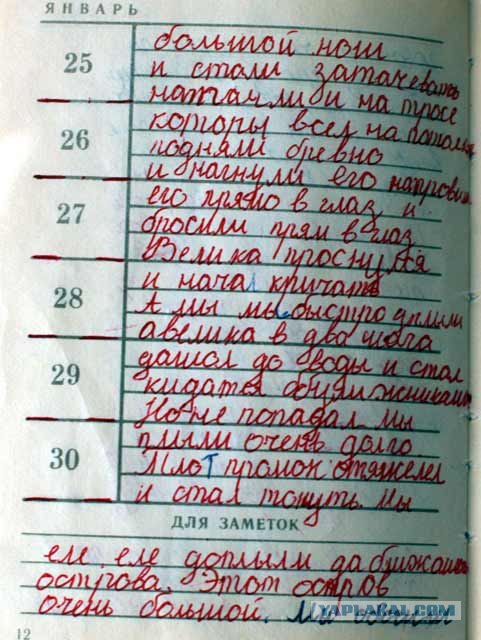 ЯНВАРЬ
25
большой нош
и стали затачевать
натачли и на тросе
которы весел на потолке
26
подняли бревно
и нагнули его напровили
его прямо в глаз и
27
бросили прям в глаз
Велика проснулАя
и начал кричать
28
А мы мы быстро уплыли
а велика в два шага
дашол до воды и стал
29
кидатея булижниками
Но не попадал мы
плыли очень долго.
30
Плот промок отяжелел
и стал тонуть мы
ДЛЯ ЗАМЕТОК
еле еле доплыли да ближайшего
острова. Этот остров
очень большой. Мы
12
YAPLAKAL.COM